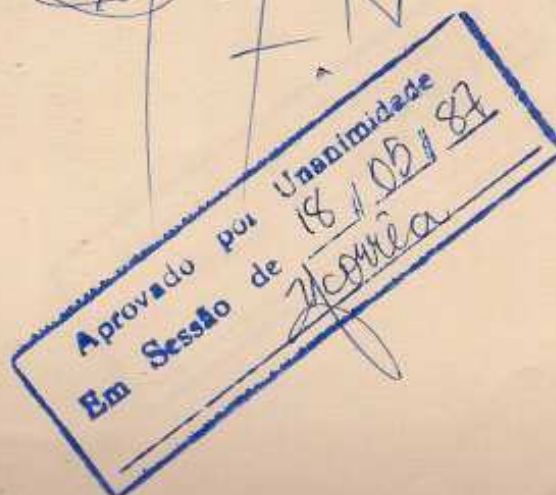 Aprovado por Unanimidade
Em Sessão de 18/05/87